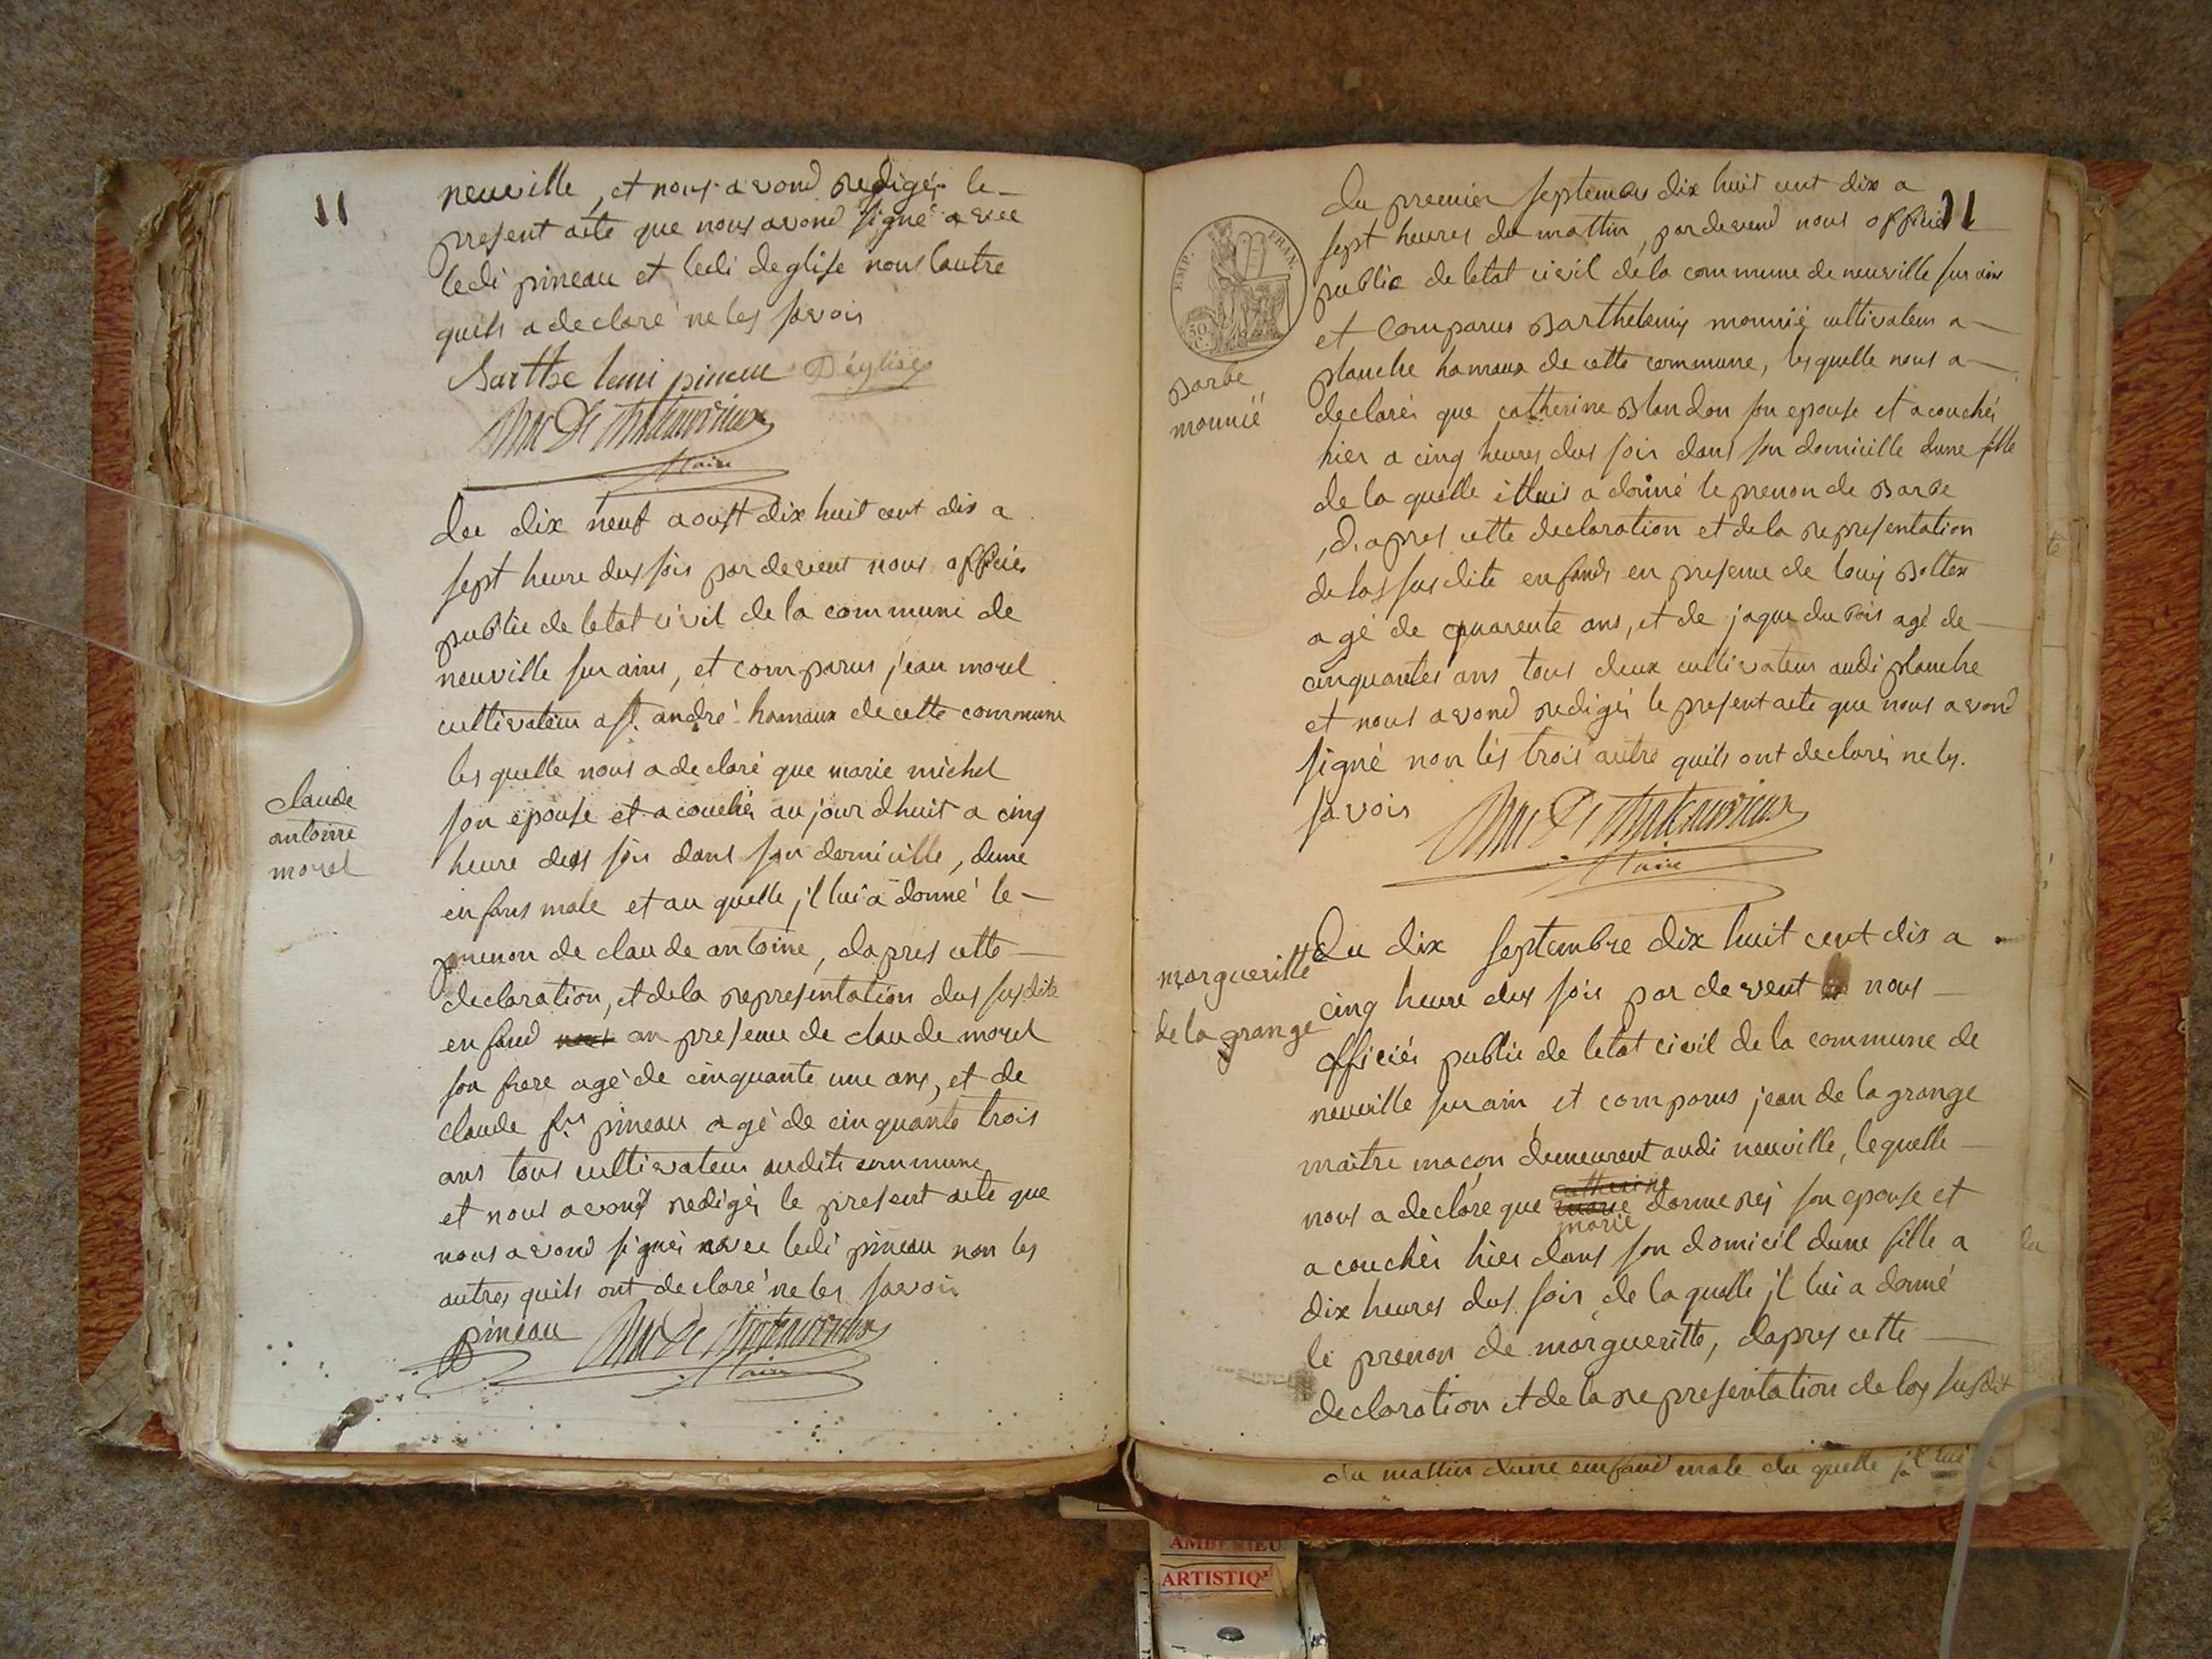 11
neuville, et nous avond redigér le
present acte que nous avond signé avec
ledi pineau et ledi deglise nous lautre
quils a declaré ne les savoir
Barthe lemi pineau Déglise
Maire
du dix neuf aoust dix huit cent dix a
sept heure dus soir pardevent nous officier
public de letat civil de la commune de
neuville sur ains, et comparus jean morel
cultivateur a st. andré hamaux de cette commune
les quelle nous a declaré que marie michel
son epouse et a couchér au jour dhuit a cinq
heure dus soir dans son domicille, dune
enfans male et au quelle j'l lui a donné le
prenon de claude antoine, dapres cette
declaration, et dela representation dus susdite
enfand an presence de claude morel
son frere agé de cinquante une ans, et de
claude fr. pineau agé de cinquante trois
ans tous cultivateur audite commune
et nous avons redigér le present acte que
nous avond signér avec ledi pineau non les
autres quils ont declaré ne les savoir
pineau
Maire
claude
antoine
morel
11
du premier septembre dix huit cent dix a
sept heures du mattin, pardevend nous officié
public de letat civil déla commune de neuville sur ain
et comparus Barthelemy mounié cultivateur a
planche hamaux de cette commune, lesquelle nous a
declarér que catherine Blandon son epouse et acouchér
hier a cinq heures dus soir dans son domicille dune fille
de la quelle il luis a donné le prenon de Barbe
, d. apres cette declaration et de la representation
de las susdite enfands en presence de louis Bolter
agé de quarente ans, et de jaque du bois agé de
cinquantes ans tous deux cultivateur audi planche
et nous avond redigér le present acte que nous avond
signé non lés trois autre quils ont declarér ne les.
savoir
Maire
EMP. FRAN.
50
Barbe
mounié
du dix septembre dix huit cent dix a
cinq heure dus soir par devent nous
officiér public de letat civil de la commune de
neuville sur ain et comparus jean de la grange
maitre maçon demeurent audi neuville, lequelle
catherine
nous a declaré que marie donnerej son epouse et
marie
a couchér hier dans son domicil dune fille a
dix heures dus soir de la quelle j'l lui a donné
le prenon de margueritte, dapres cette
declaration et de la representation de las susdit
margueritte
de la grange
du mattin dune enfand male du quelle j'l lui
la
AMBERIEU
ARTISTIQ